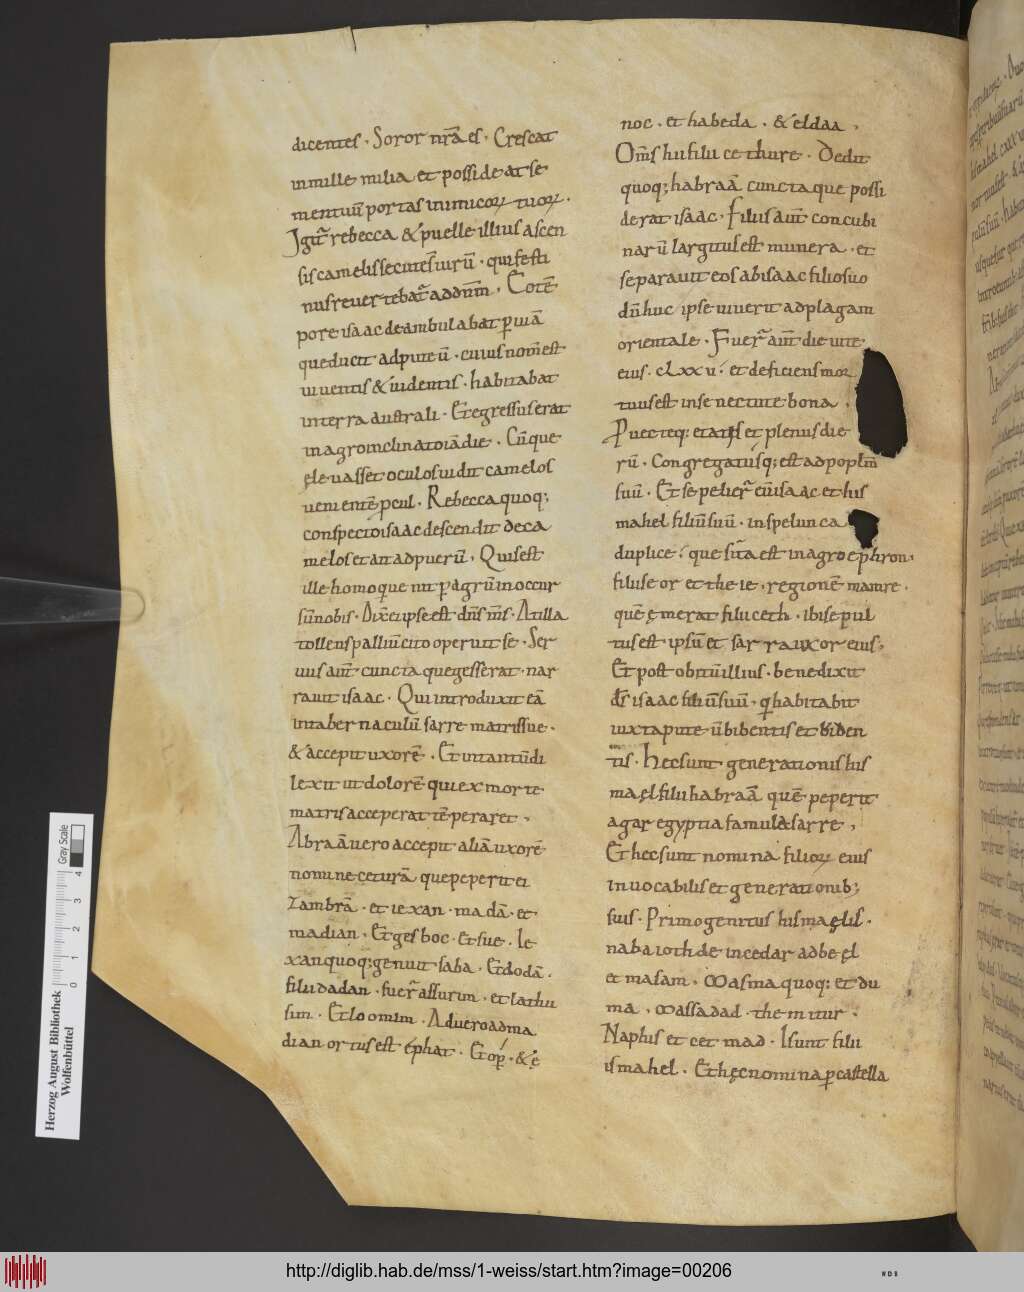 dicentes · Soror nr̄a es · Crescat
in mille milia et possideat se
men tuū portas inimicoꝝ tuoꝝ ·
Igit̄ rebecca & puelle illius ascen
sis camelis secutę s̄t uirū · qui festi
nus reuertebat̄ ad dn̄m · Eo tē
pore isaac deambulabat p uiā
que ducit ad puteū · cuius nom̄ est
uiuentis & uidentis · habitabat
in terra australi · Et egressus erat
in agro inclinato iā die · Cūque
eleuasset oculos uidit camelos
uenientē pcul · Rebecca quoq;
conspecto isaac descendit de ca
melos et ait ad puerū · Quis est
ille homo que uit p agrū in occur
sū nobis · Dix̄ ei ipse est dn̄s m̄s · At illa
tollens palliū cito operuit se · Ser
uus aut̄ cuncta que gesserat · nar
rauit isaac · Qui introduxit eā
in tabernaculū sarre matris sue ·
& accepit uxorē · Et in tantū di
lexit ut dolorē qui ex morte
matris acceperat tēperaret ·
Abraā uero accepit aliā uxorē
nomine ceturā que peperit ei
Zambrā · et iexan · madā · et
madian · Et gesboc · et sue · Ie
xan quoq; genuit saba · Et dodā ·
filii dadan · fuer̄ assurim · et lathu
sim · Et loomim · At uero ad ma
dian ortus est ephat · Et op · & ę
noc · et habeda · & eldaa ·
Om̄s hii filii cethure · Dedit
quoq; habraā cuncta que possi
derat isaac · Filiis aut̄ concubi
narū largitus est munera · et
separauit eos ab isaac filio suo
dū huc ipse uiuerit ad plagam
orientale · Fuer̄ aut̄ die uite
eius · cLxxu · et deficiens mor
tuus est in senectute bona ·
Puecteq; etatis et plenus die
rū · Congregatusq; est ad poplm̄
suū · Et sepelier̄ eū isaac et his
mahel filiū suū · in spelunca
duplice · que sita est in agro ephron ·
filii seor et theie · regionē mamre ·
quē emerat filii ceth · ibi sepul
tus est ipsū et sarra uxor eius ·
Et post obitū illius · benedixit
ds̄ isaac filiū suū · q habitabit
iuxta puteū bibentis et uiden
tis · Hec sunt generationis his
maęl filii habraā quē peperit
agar egyptia famula sarre ·
Et hec sunt nomina filioꝝ eius
in uocabilis et generationib;
suis · Primogenitus hismaęlis ·
nabaioth deinde cedar adbeęl
et masam · Masma quoq; et du
ma · massa dad · themitur ·
Naphis et cetmad · Isunt filii
ismahel · Et hęc nomina p castella
Herzog August Bibliothek
Wolfenbüttel
0 1 2 3 4
Gray Scale
http://diglib.hab.de/mss/1-weiss/start.htm?image=00206